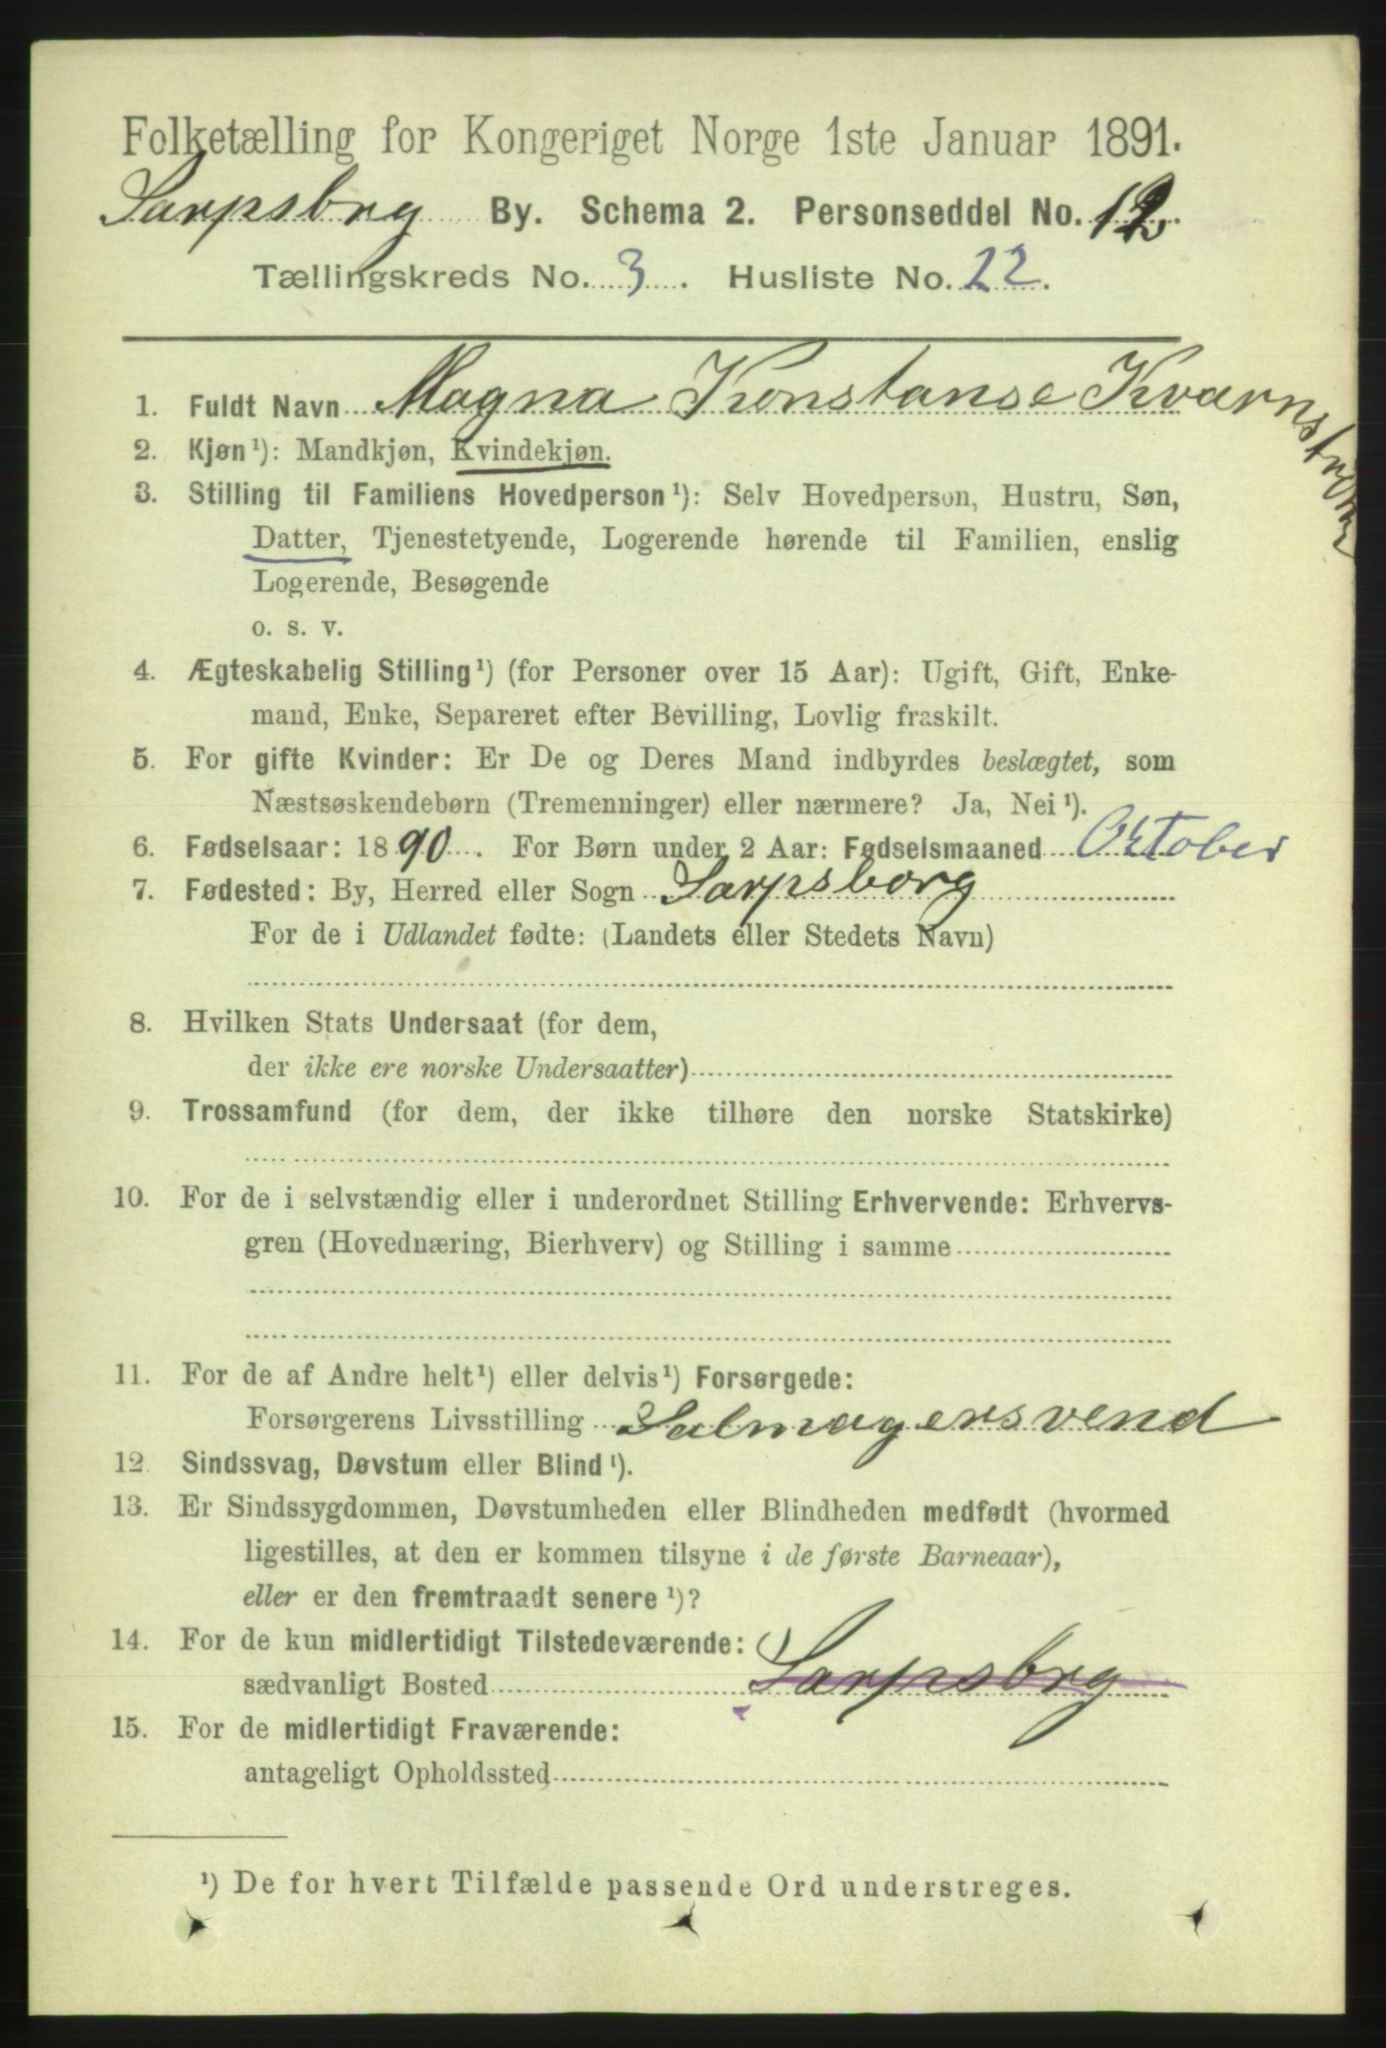 Folketælling for Kongeriget Norge 1ste Januar 1891.
Sarpsbrg By. Schema 2. Personseddel No. 12.
Tællingskreds No. 3. Husliste No. 22.
1. Fuldt Navn Magna Konstanse Kvarnstrøm
2. Kjøn¹): Mandkjøn, Kvindekjøn.
3. Stilling til Familiens Hovedperson¹): Selv Hovedperson, Hustru, Søn,
Datter, Tjenestetyende, Logerende hørende til Familien, enslig
Logerende, Besøgende
o. s. v.
4. Ægteskabelig Stilling¹) (for Personer over 15 Aar): Ugift, Gift, Enke-
mand, Enke, Separeret efter Bevilling, Lovlig fraskilt.
5. For gifte Kvinder: Er De og Deres Mand indbyrdes beslægtet, som
Næstsøskendebørn (Tremenninger) eller nærmere? Ja, Nei¹).
6. Fødselsaar: 1890. For Børn under 2 Aar: Fødselsmaaned Oktober
7. Fødested: By, Herred eller Sogn Sarpsborg
For de i Udlandet fødte: (Landets eller Stedets Navn)
8. Hvilken Stats Undersaat (for dem,
der ikke ere norske Undersaatter)
9. Trossamfund (for dem, der ikke tilhøre den norske Statskirke)
10. For de i selvstændig eller i underordnet Stilling Erhvervende: Erhvervs-
gren (Hovednæring, Bierhverv) og Stilling i samme
11. For de af Andre helt¹) eller delvis¹) Forsørgede:
Forsørgerens Livsstilling Salmagersvend
12. Sindssvag, Døvstum eller Blind¹).
13. Er Sindssygdommen, Døvstumheden eller Blindheden medfødt (hvormed
ligestilles, at den er kommen tilsyne i de første Barneaar),
eller er den fremtraadt senere¹)?
14. For de kun midlertidigt Tilstedeværende:
sædvanligt Bosted Sarpsbrg
15. For de midlertidigt Fraværende:
antageligt Opholdssted
¹) De for hvert Tilfælde passende Ord understreges.